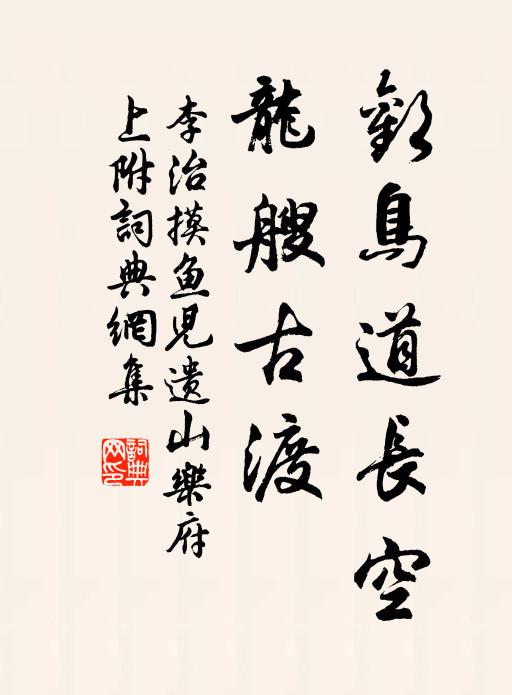 歎鳥道長空
龍艘古渡
李治摸鱼児遗山樂府
上附詞典網集
詞典网印